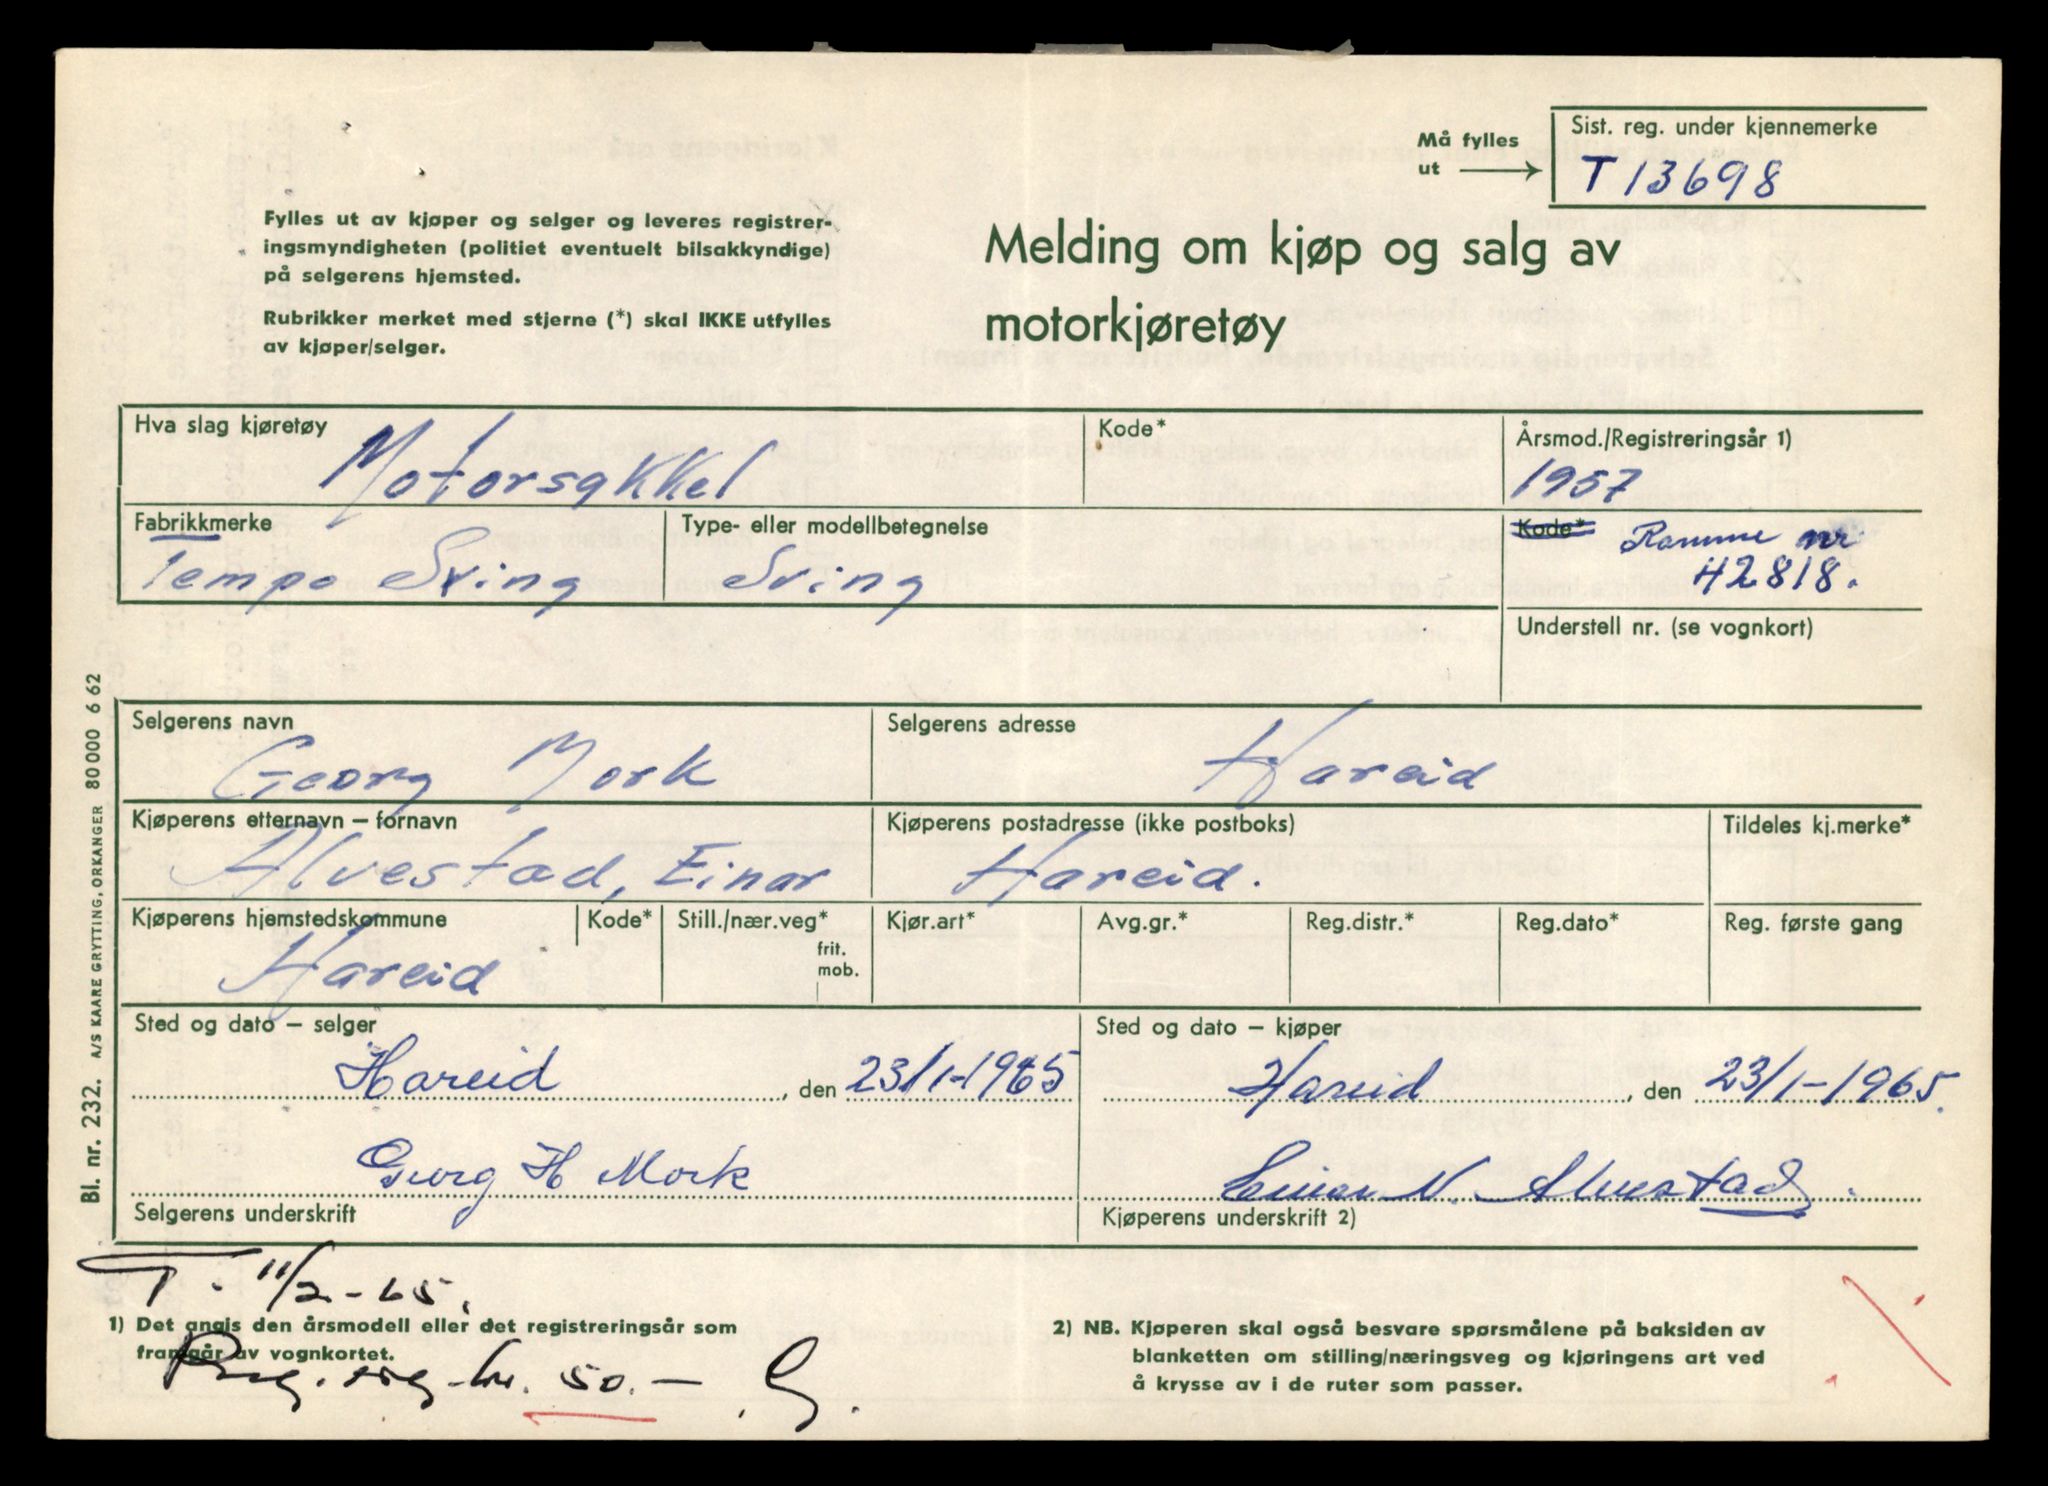 Må fylles
ut
Sist. reg. under kjennemerke
T 13698
Fylles ut av kjøper og selger og leveres registrer-
ingsmyndigheten (politiet eventuelt bilsakkyndige)
på selgerens hjemsted.
Rubrikker merket med stjerne (*) skal IKKE utfylles
av kjøper/selger.
Melding om kjøp og salg av
motorkjøretøy
Hva slag kjøretøy
Motorsykkel
Kode*
Årsmod./Registreringsår 1)
1957
Fabrikkmerke
Tempo Sving
Type- eller modellbetegnelse
Sving
Kode*
Ramme nr
42818.
Understell nr. (se vognkort)
Selgerens navn
Georg Mork
Selgerens adresse
Hareid
Kjøperens etternavn – fornavn
Alvestad, Einar
Kjøperens postadresse (ikke postboks)
Hareid.
Tildeles kj.merke*
Kjøperens hjemstedskommune
Hareid
Kode*
Still./nær.veg*
frit.
mob.
Kjør.art*
Avg.gr.*
Reg.distr.*
Reg.dato*
Reg. første gang
Sted og dato – selger
Hareid, den 23/1-1965
Sted og dato – kjøper
Hareid, den 23/1-1965.
Georg H Mork
Selgerens underskrift
Einar N. Alvestad.
Kjøperens underskrift 2)
T. 11/2-65.
1) Det angis den årsmodell eller det registreringsår som
framgår av vognkortet.
kr. 50.-
2) NB. Kjøperen skal også besvare spørsmålene på baksiden av
blanketten om stilling/næringsveg og kjøringens art ved
å krysse av i de ruter som passer.
Bl. nr. 232. A/S KAARE GRYTTING, ORKANGER 80000 6 62